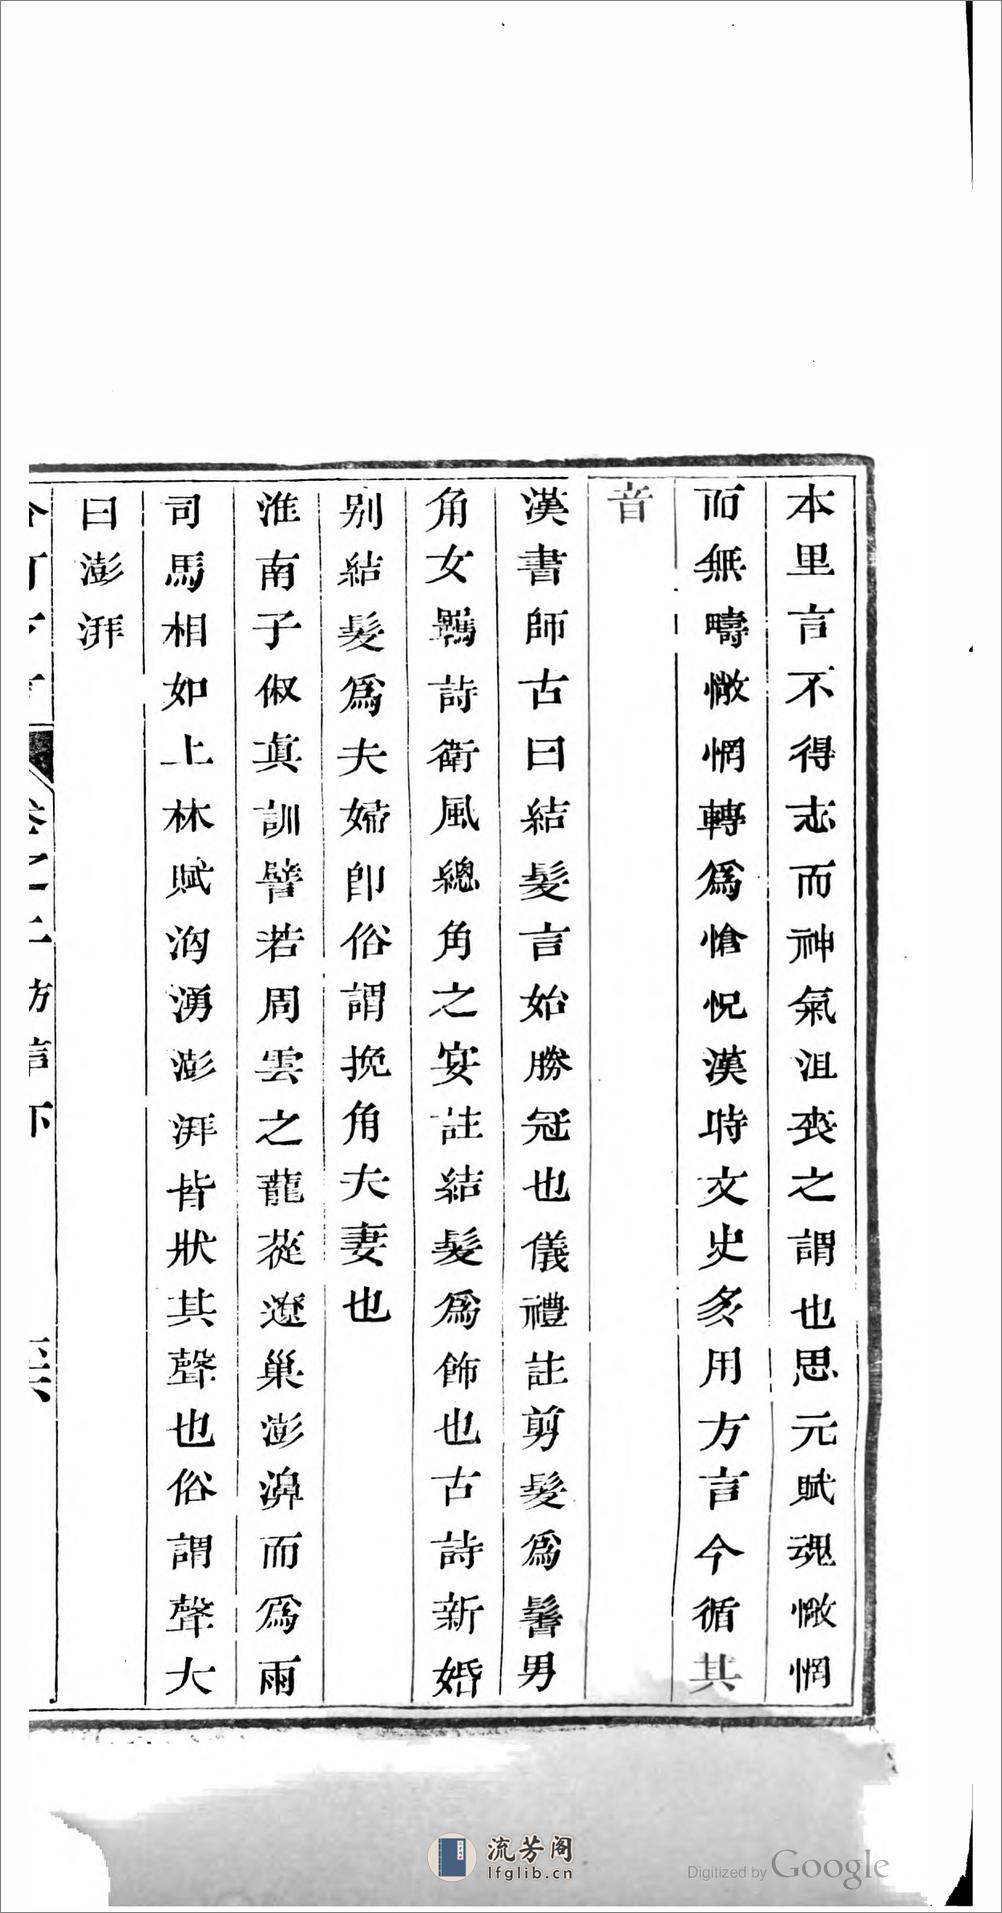 本里言不得志而神氣沮喪之謂也思元賦魂㦗惘
而無疇㦗惘轉爲愴怳漢時文史多用方言今循其
音
漢書師古曰結髮言始勝冠也儀禮註剪髮爲鬌男
角女羈詩衛風總角之宴註結髮爲飾也古詩新婚
别結髮爲夫婦卽俗謂挽角夫妻也
淮南子俶真訓譬若周雲之蘢蓯遼巢澎濞而爲雨
司馬相如上林賦洶湧澎湃皆狀其聲也俗謂聲大
曰澎湃
卷之二 訪信下
流芳阁
lfglib.cn
Digitized by Google